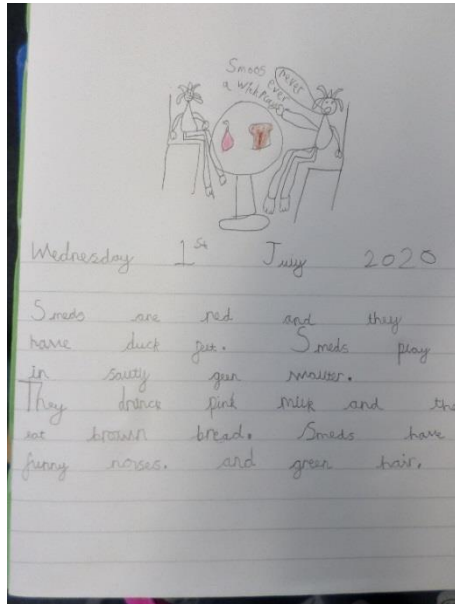 Smoos
a Whk
never
ever
Wednesday 1st July 2020
Smeds are red and they
have duck feet. Smeds play
in sauty geen wauter.
They drinck pink milk and the
eat brown bread. Smeds have
funny noises. and green hair.